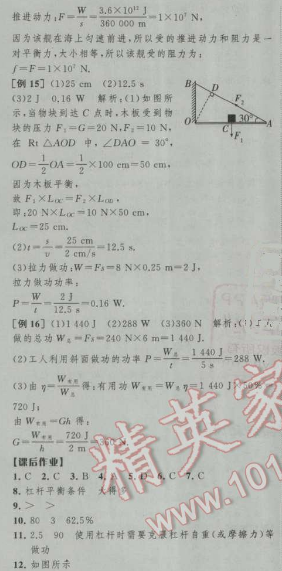 推进动力:F=W/s=3.6×10¹² J/360 000 m=1×10⁷ N,
因为该舰在海上匀速前进,所以受的推进动力和阻力是一
对平衡力,大小相等,所以该舰受的阻力为:
f=F=1×10⁷ N.
[例 15](1)25 cm (2)12.5 s
(3)2 J 0.16 W 解析:(1)如图所
示,当物块到达 C 点时,木板受到物
块的压力 F₁=G=20 N,F₂=10 N,
在 Rt△AOD 中,∠DAO=30°,
OD=1/2OA=1/2×100 cm=50 cm,
因为木板平衡,
故 F₁×L_OC=F₂×L_OD,
即:20 N×L_OC=10 N×50 cm,
L_OC=25 cm.
B
D
F₂
30°
O
C
A
F₁
(2)t=s/v=25 cm/2 cm/s=12.5 s.
(3)拉力做功:W=Fs=8 N×0.25 m=2 J,
拉力做功功率:
P=W/t=2 J/12.5 s=0.16 W.
[例 16](1)1 440 J (2)288 W (3)360 N 解析:(1)
做的总功 W总=Fs=240 N×6 m=1 440 J.
(2)工人利用斜面做功的功率 P=W总/t=1 440 J/5 s=288 W.
(3)由 η=W有用/W总得:有用功 W有用=W总η=1 440 J×50%=
720 J;
由 W有用=Gh 得:
G=W有用/h=720 J/2 m=360 N.
[课后作业]
1. C 2. C 3. B 4. 5. D 6. C 7. C
8. 杠杆平衡条件 大得
9. > >
10. 80 3 62.5%
11. 2.5 90 使用杠杆时需要克服杠杆自重(或摩擦力)等
做功
12. 如图所示
精英家
www.101